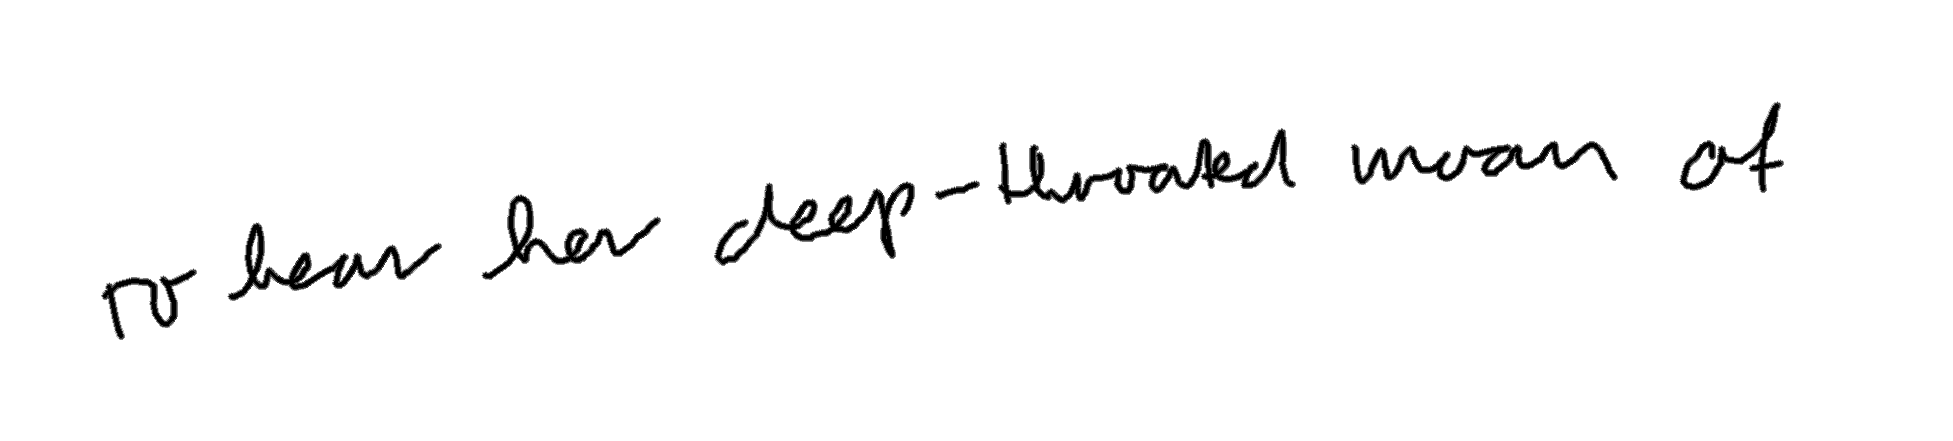 to hear her deep-throated moan of